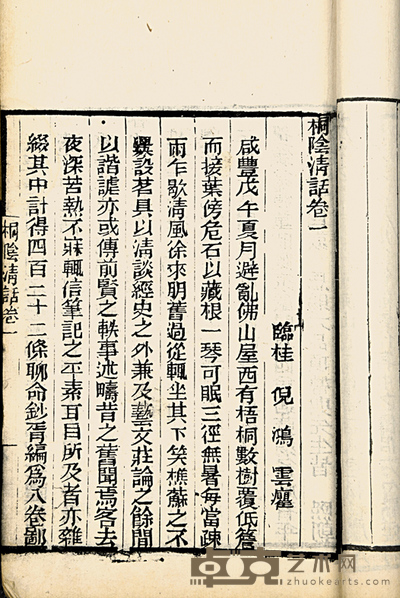 桐陰清話卷一
臨桂 倪鴻 雲癯
咸豐戊午夏月避亂佛山屋西有梧桐數樹覆低簷
而接葉傍危石以藏根一琴可眠三徑無暑每當疎
雨乍歇清風徐來朋舊過從輒坐其下笑樵蘇之不
爨設茗具以清談經史之外兼及藝文莊論之餘間
以諧謔亦或傳前賢之軼事述疇昔之舊聞焉客去
夜深苦熱不寐輒信筆記之平素耳目所及者亦雜
綴其中計得四百二十二條聊命鈔胥編爲八卷鄙
桐陰清話卷一
卓克艺术网
zhuokearts.com